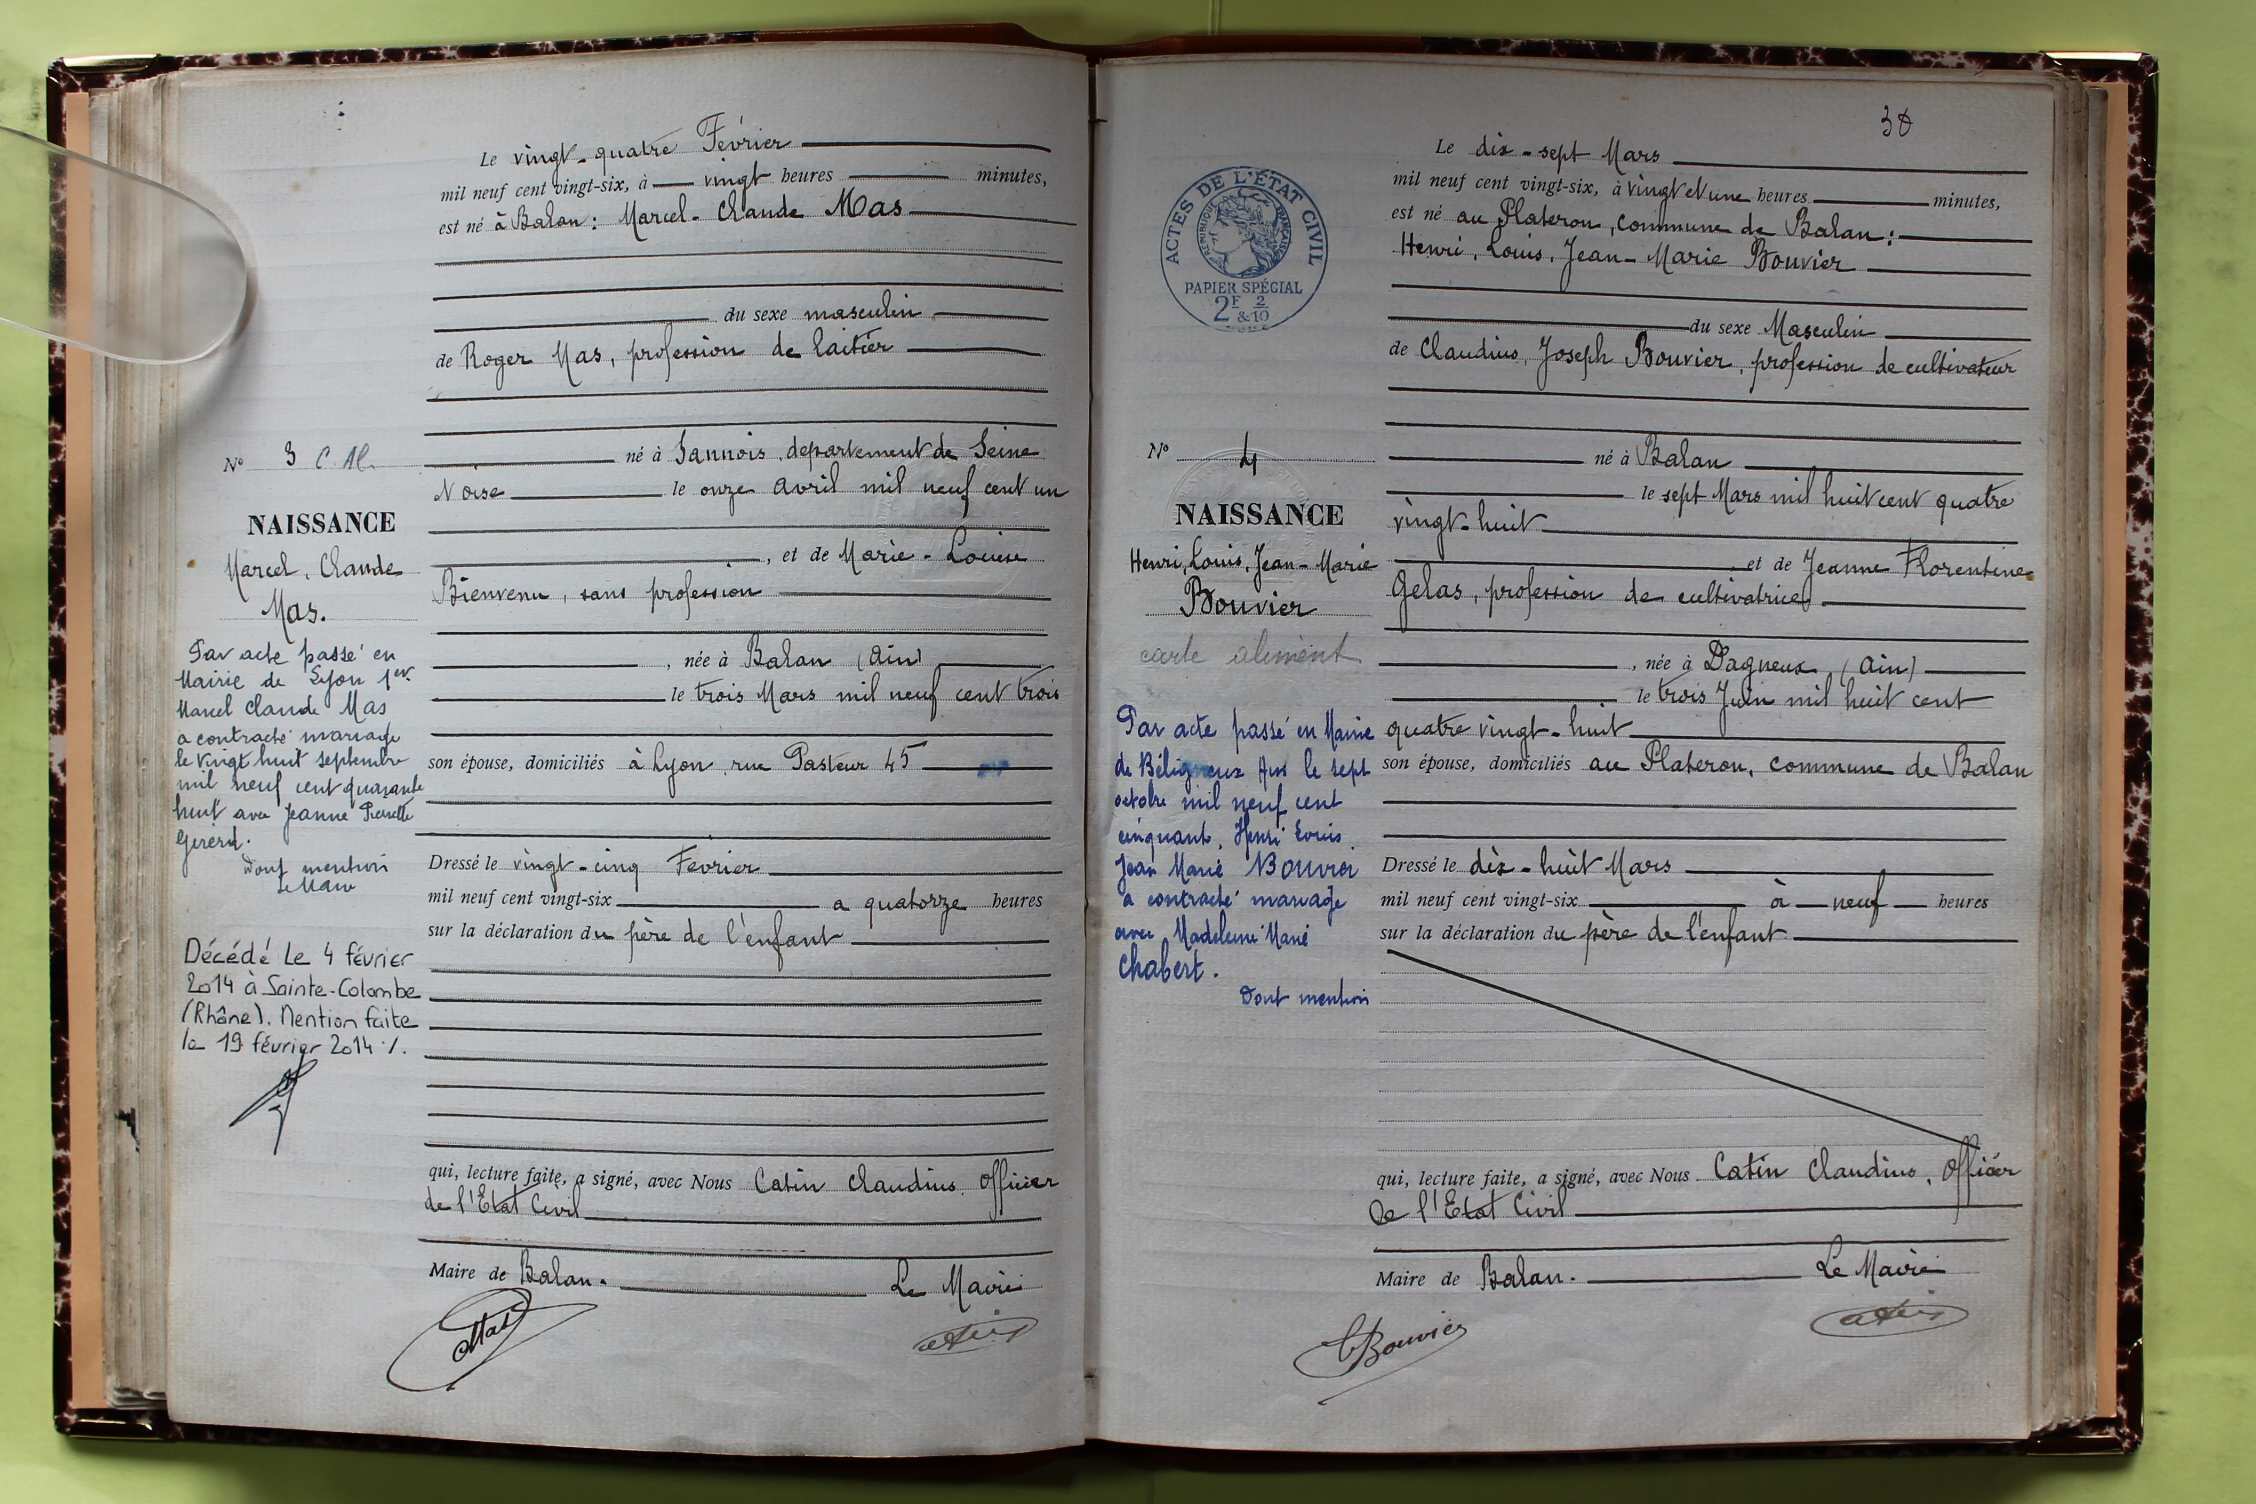 Le vingt-quatre Février
mil neuf cent vingt-six, à vingt heures minutes,
est né à Balan : Marcel-Claude Mas
du sexe masculin
de Roger Mas, profession de laitier
né à Sannois, département de Seine
N° 3 C. Al.
Noise le onze avril mil neuf cent un
NAISSANCE
, et de Marie-Louise
Marcel, Claude
Bienvenu, sans profession
Mas.
Par acte passé en
Mairie de Lyon 1er
Marcel Claude Mas
a contracté mariage
le vingt huit septembre
mil neuf cent quarante
huit avec Jeanne Pierrette
Dont mention
le Maire
, née à Balan (Ain)
le trois Mars mil neuf cent trois
son épouse, domiciliés à Lyon, rue Pasteur 45
Dressé le vingt-cinq Février
mil neuf cent vingt-six a quatorze heures
sur la déclaration du père de l'enfant
Décédé Le 4 février
2014 à Sainte-Colombe
(Rhône). Mention faite
le 19 février 2014 ./.
qui, lecture faite, a signé, avec Nous Catin Claudius, Officier
de l'Etat Civil
Maire de Balan. Le Maire
Mas
30
ACTES DE L'ÉTAT CIVIL
RÉPUBLIQUE FRANÇAISE
PAPIER SPÉCIAL
2F 2/10
Le dix-sept Mars
mil neuf cent vingt-six, à vingt et une heures minutes,
est né au Plateron, commune de Balan :
Henri, Louis, Jean-Marie Bouvier
du sexe Masculin
de Claudius, Joseph Bouvier, profession de cultivateur
N° 4
né à Balan
le sept Mars mil huit cent quatre
NAISSANCE
vingt-huit
Henri, Louis, Jean-Marie
et de Jeanne Florentine
Bouvier
Gelas, profession de cultivatrice
carte aliment
, née à Dagneux (Ain)
le trois Juin mil huit cent
quatre vingt-huit
son épouse, domiciliés au Plateron, commune de Balan
Par acte passé en Mairie
de Béligneux Ain le sept
octobre mil neuf cent
cinquante, Henri Louis
Jean Marie Bouvier
a contracté mariage
avec Madeleine Marie
Chabert.
Dont mention
Dressé le dix-huit Mars
mil neuf cent vingt-six à neuf heures
sur la déclaration du père de l'enfant
qui, lecture faite, a signé, avec Nous Catin Claudius, Officier
de l'Etat Civil
Maire de Balan. Le Maire
Bouvier